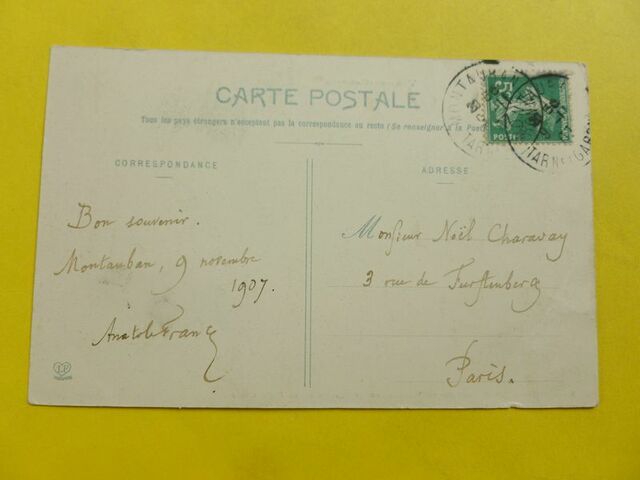 CARTE POSTALE
Tous les pays étrangers n'acceptent pas la correspondance au recto (Se renseigner à la Poste
CORRESPONDANCE
ADRESSE
Bon souvenir.
Montauban, 9 novembre
1907.
Anatole France
Monsieur Noël Charavay
3 rue de Furstenberg
Paris.
MONTAUBAN
TARN
POSTES
TARN ET GARONNE